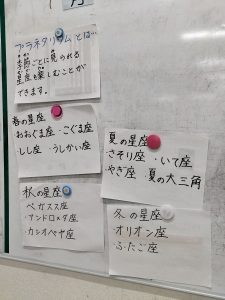 プラネタリウムとは…
季節ごとに見られる
星座を楽しむことが
できます。
春の星座
・おおぐま座・こぐま座
・しし座・うしかい座
夏の星座
・さそり座・いて座
・やぎ座・夏の大三角
秋の星座
・ペガスス座
・アンドロメダ座
・カシオペヤ座
冬の星座
・オリオン座
・ふたご座